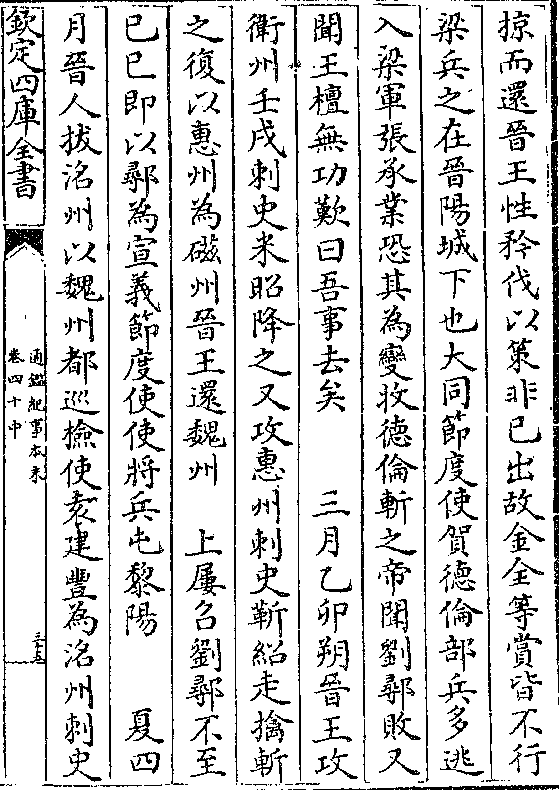 掠而還晉王性矜伐以策非已出故金全等賞皆不行
梁兵之在晉陽城下也大同節度使賀德倫部兵多逃
入梁軍張承業恐其為變收德倫斬之帝聞劉鄩敗又
聞王檀無功歎曰吾事去矣 三月乙卯朔晉王攻
衛州壬戌刺史米昭降之又攻惠州刺史靳紹走擒斬
之復以惠州為磁州晉王還魏州 上屢召劉鄩不至
已巳即以鄩為宣義節度使使將兵屯黎陽 夏四
月晉人拔洺州以魏州都巡檢使袁建豐為洺州刺史
欽定四庫全書
通鑑紀事本末
卷四十中
三十五